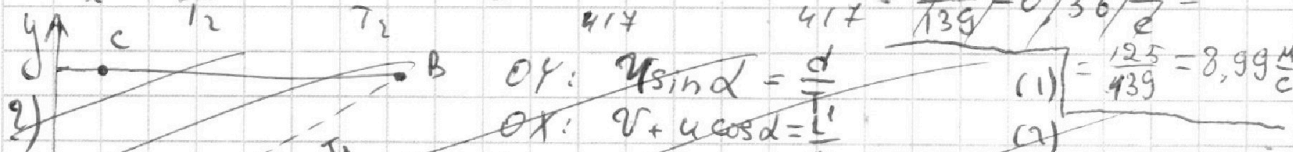 T₂ T₂ 417 417 139 0,36 c
y C B OY: U sin α = d
(1) = 125/139 = 8,99 м/с
2) OX: V + u cos α = L'
(2)